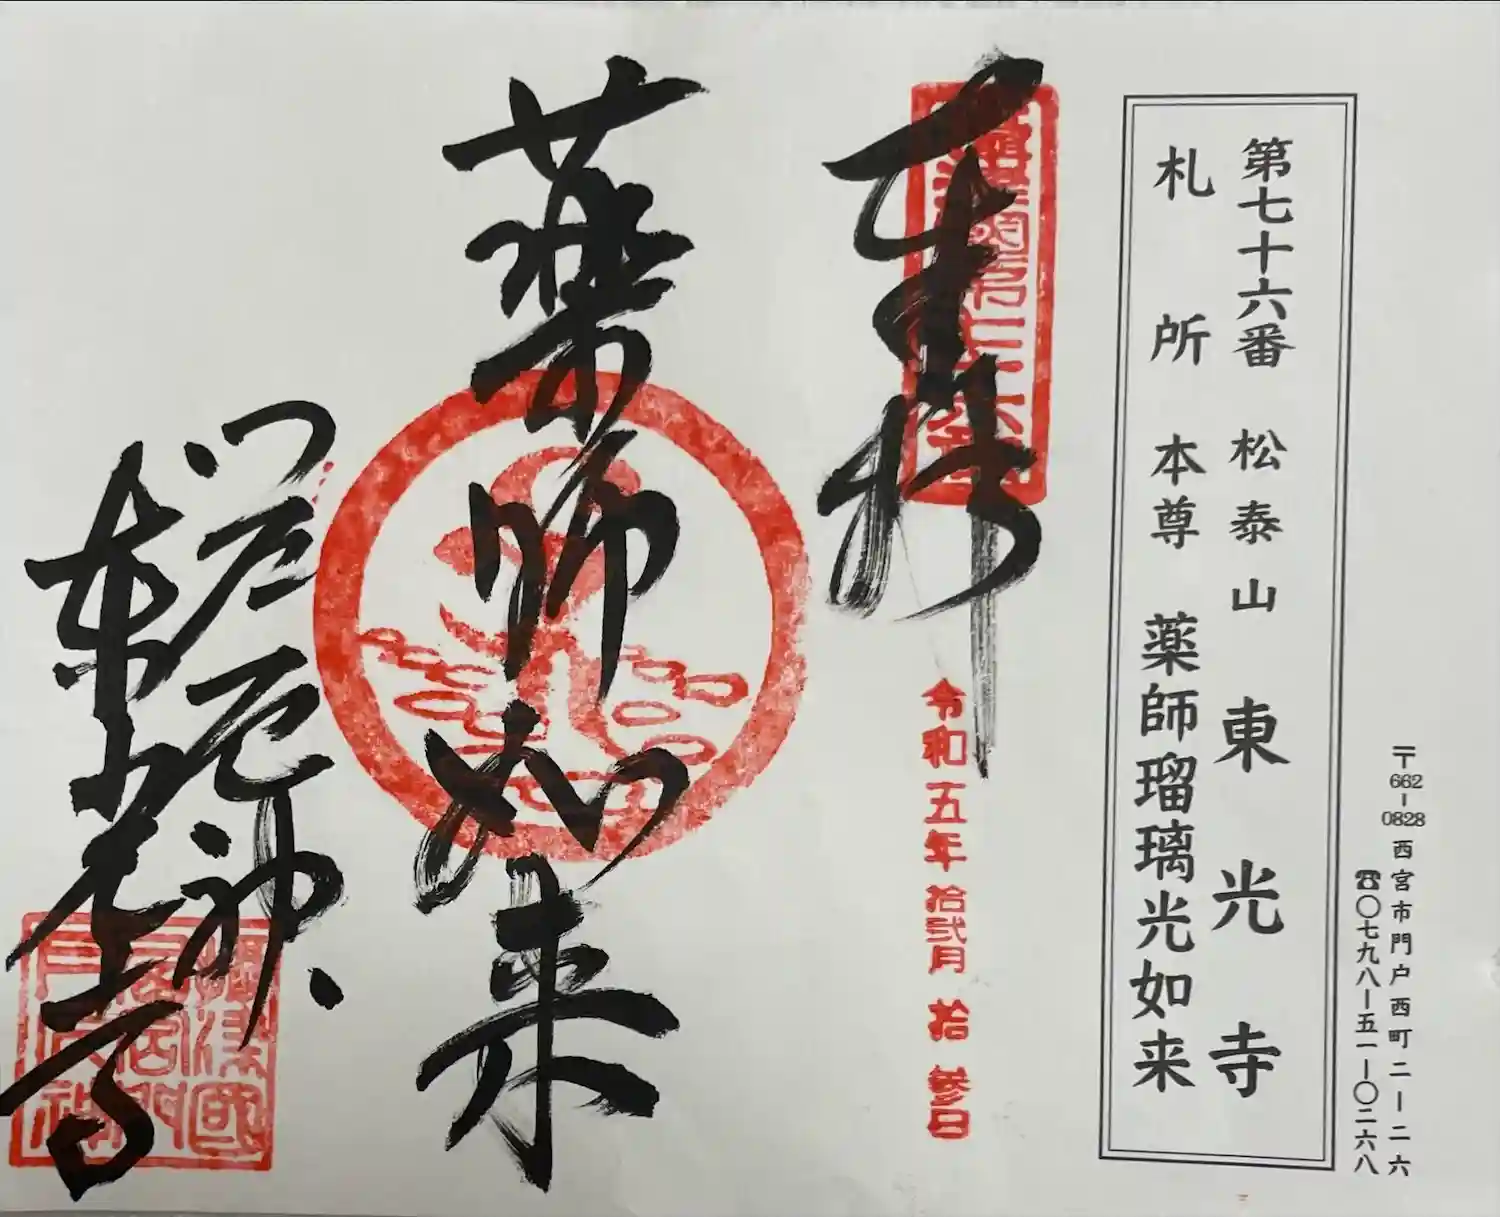 〒662-0828 西宮市門戸西町二ー二六
☎〇七九八ー五一ー〇二六八
第七十六番 松泰山 東光寺
札所 本尊 薬師瑠璃光如来
奉拝
令和五年 拾弐月 拾参日
薬師如来
門戸厄神
東光寺
攝津國
西宮門
戸厄神